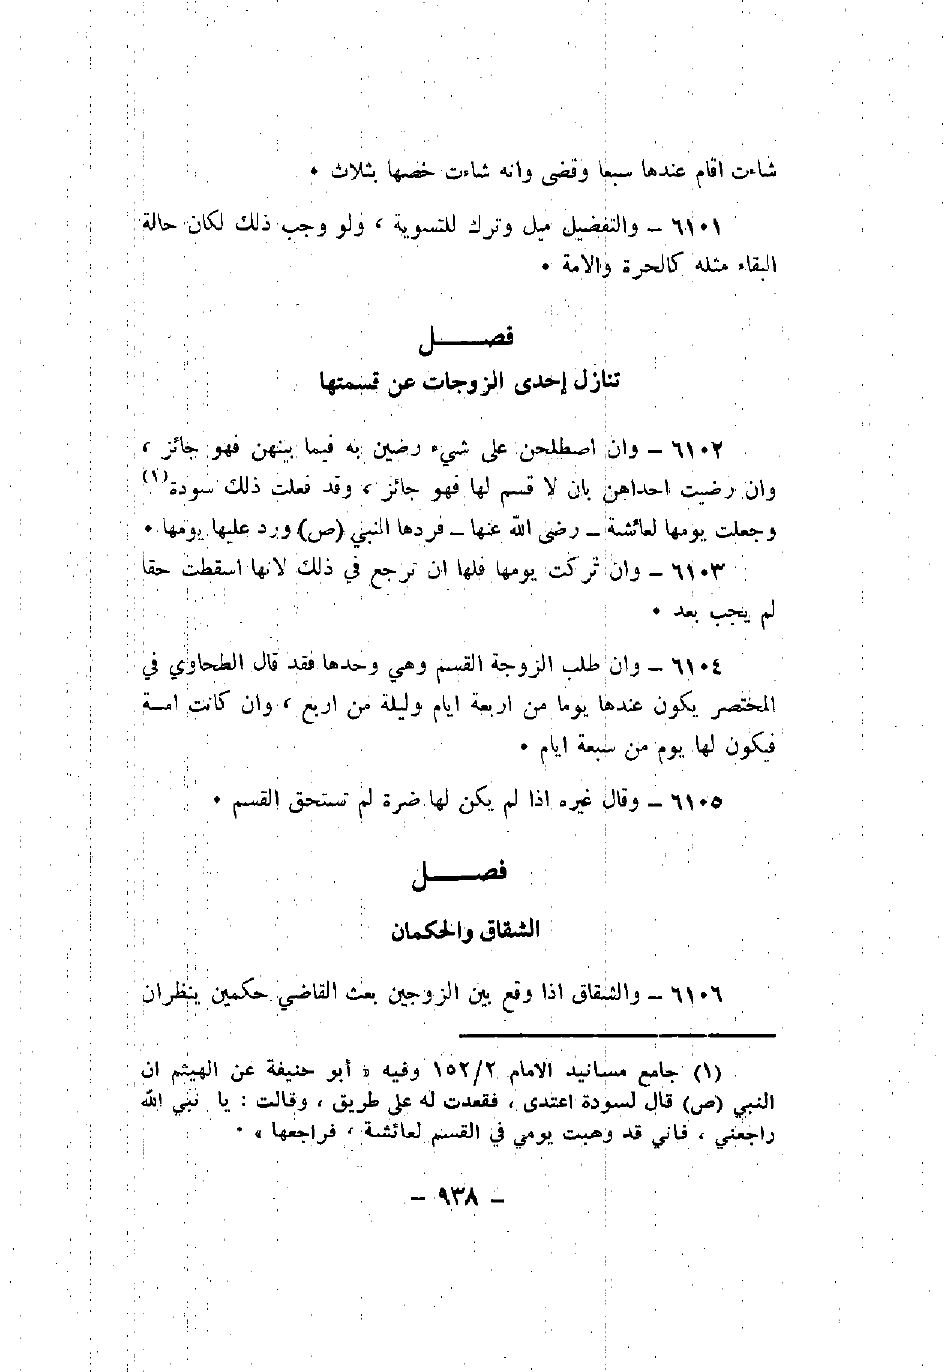 شاءت اقام عندها سبعا وقضى وانه شاءت خصها بثلاث •
٦١٠١ – والتفضيل ميل وترك للتسوية ، ولو وجب ذلك لكان حالة
البقاء مثله كالحرة والامة •
فصـــــل
تنازل إحدى الزوجات عن قسمتها
٦١٠٢ – وان اصطلحن على شيء رضين به فيما بينهن فهو جائز ،
وان رضيت احداهن بان لا قسم لها فهو جائز ، وقد فعلت ذلك سودة(١)
وجعلت يومها لعائشة – رضى الله عنها – فردها النبي (ص) ورد عليها يومها •
٦١٠٣ – وان تركت يومها فلها ان ترجع في ذلك لانها اسقطت حقا
لم يجب بعد •
٦١٠٤ – وان طلب الزوجة القسم وهي وحدها فقد قال الطحاوي في
المختصر يكون عندها يوما من اربعة ايام وليلة من اربع ، وان كانت امـة
فيكون لها يوم من سبعة ايام •
٦١٠٥ – وقال غيره اذا لم يكن لها ضرة لم تستحق القسم •
فصـــــل
الشقاق والحكمان
٦١٠٦ – والشقاق اذا وقع بين الزوجين بعث القاضي حكمين ينظران
(١) جامع مسانيد الامام ١٥٢/٢ وفيه « أبو حنيفة عن الهيثم ان
النبي (ص) قال لسودة اعتدى ، فقعدت له على طريق ، وقالت : يا نبي الله
راجعني ، فاني قد وهبت يومي في القسم لعائشة ، فراجعها » •
– ٩٣٨ –